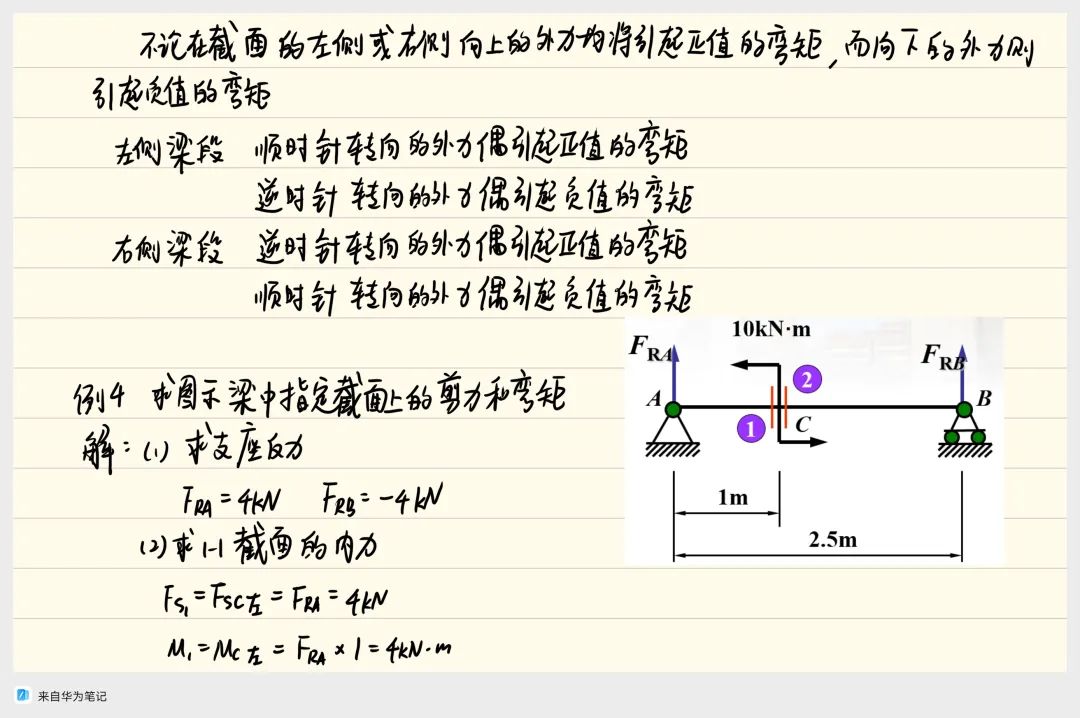 不论在截面的左侧或右侧向上的外力均将引起正值的弯矩,而向下的外力则
引起负值的弯矩
左侧梁段 顺时针转向的外力偶引起正值的弯矩
逆时针转向的外力偶引起负值的弯矩
右侧梁段 逆时针转向的外力偶引起正值的弯矩
顺时针转向的外力偶引起负值的弯矩
10kN·m
FRA
FRB
2
A
B
1
C
1m
2.5m
例4 求图示梁中指定截面上的剪力和弯矩
解:(1) 求支座反力
FRA=4kN FRB=-4kN
(2)求1-1截面的内力
FS1=FSC左=FRA=4kN
M1=MC左=FRA×1=4kN·m
来自华为笔记